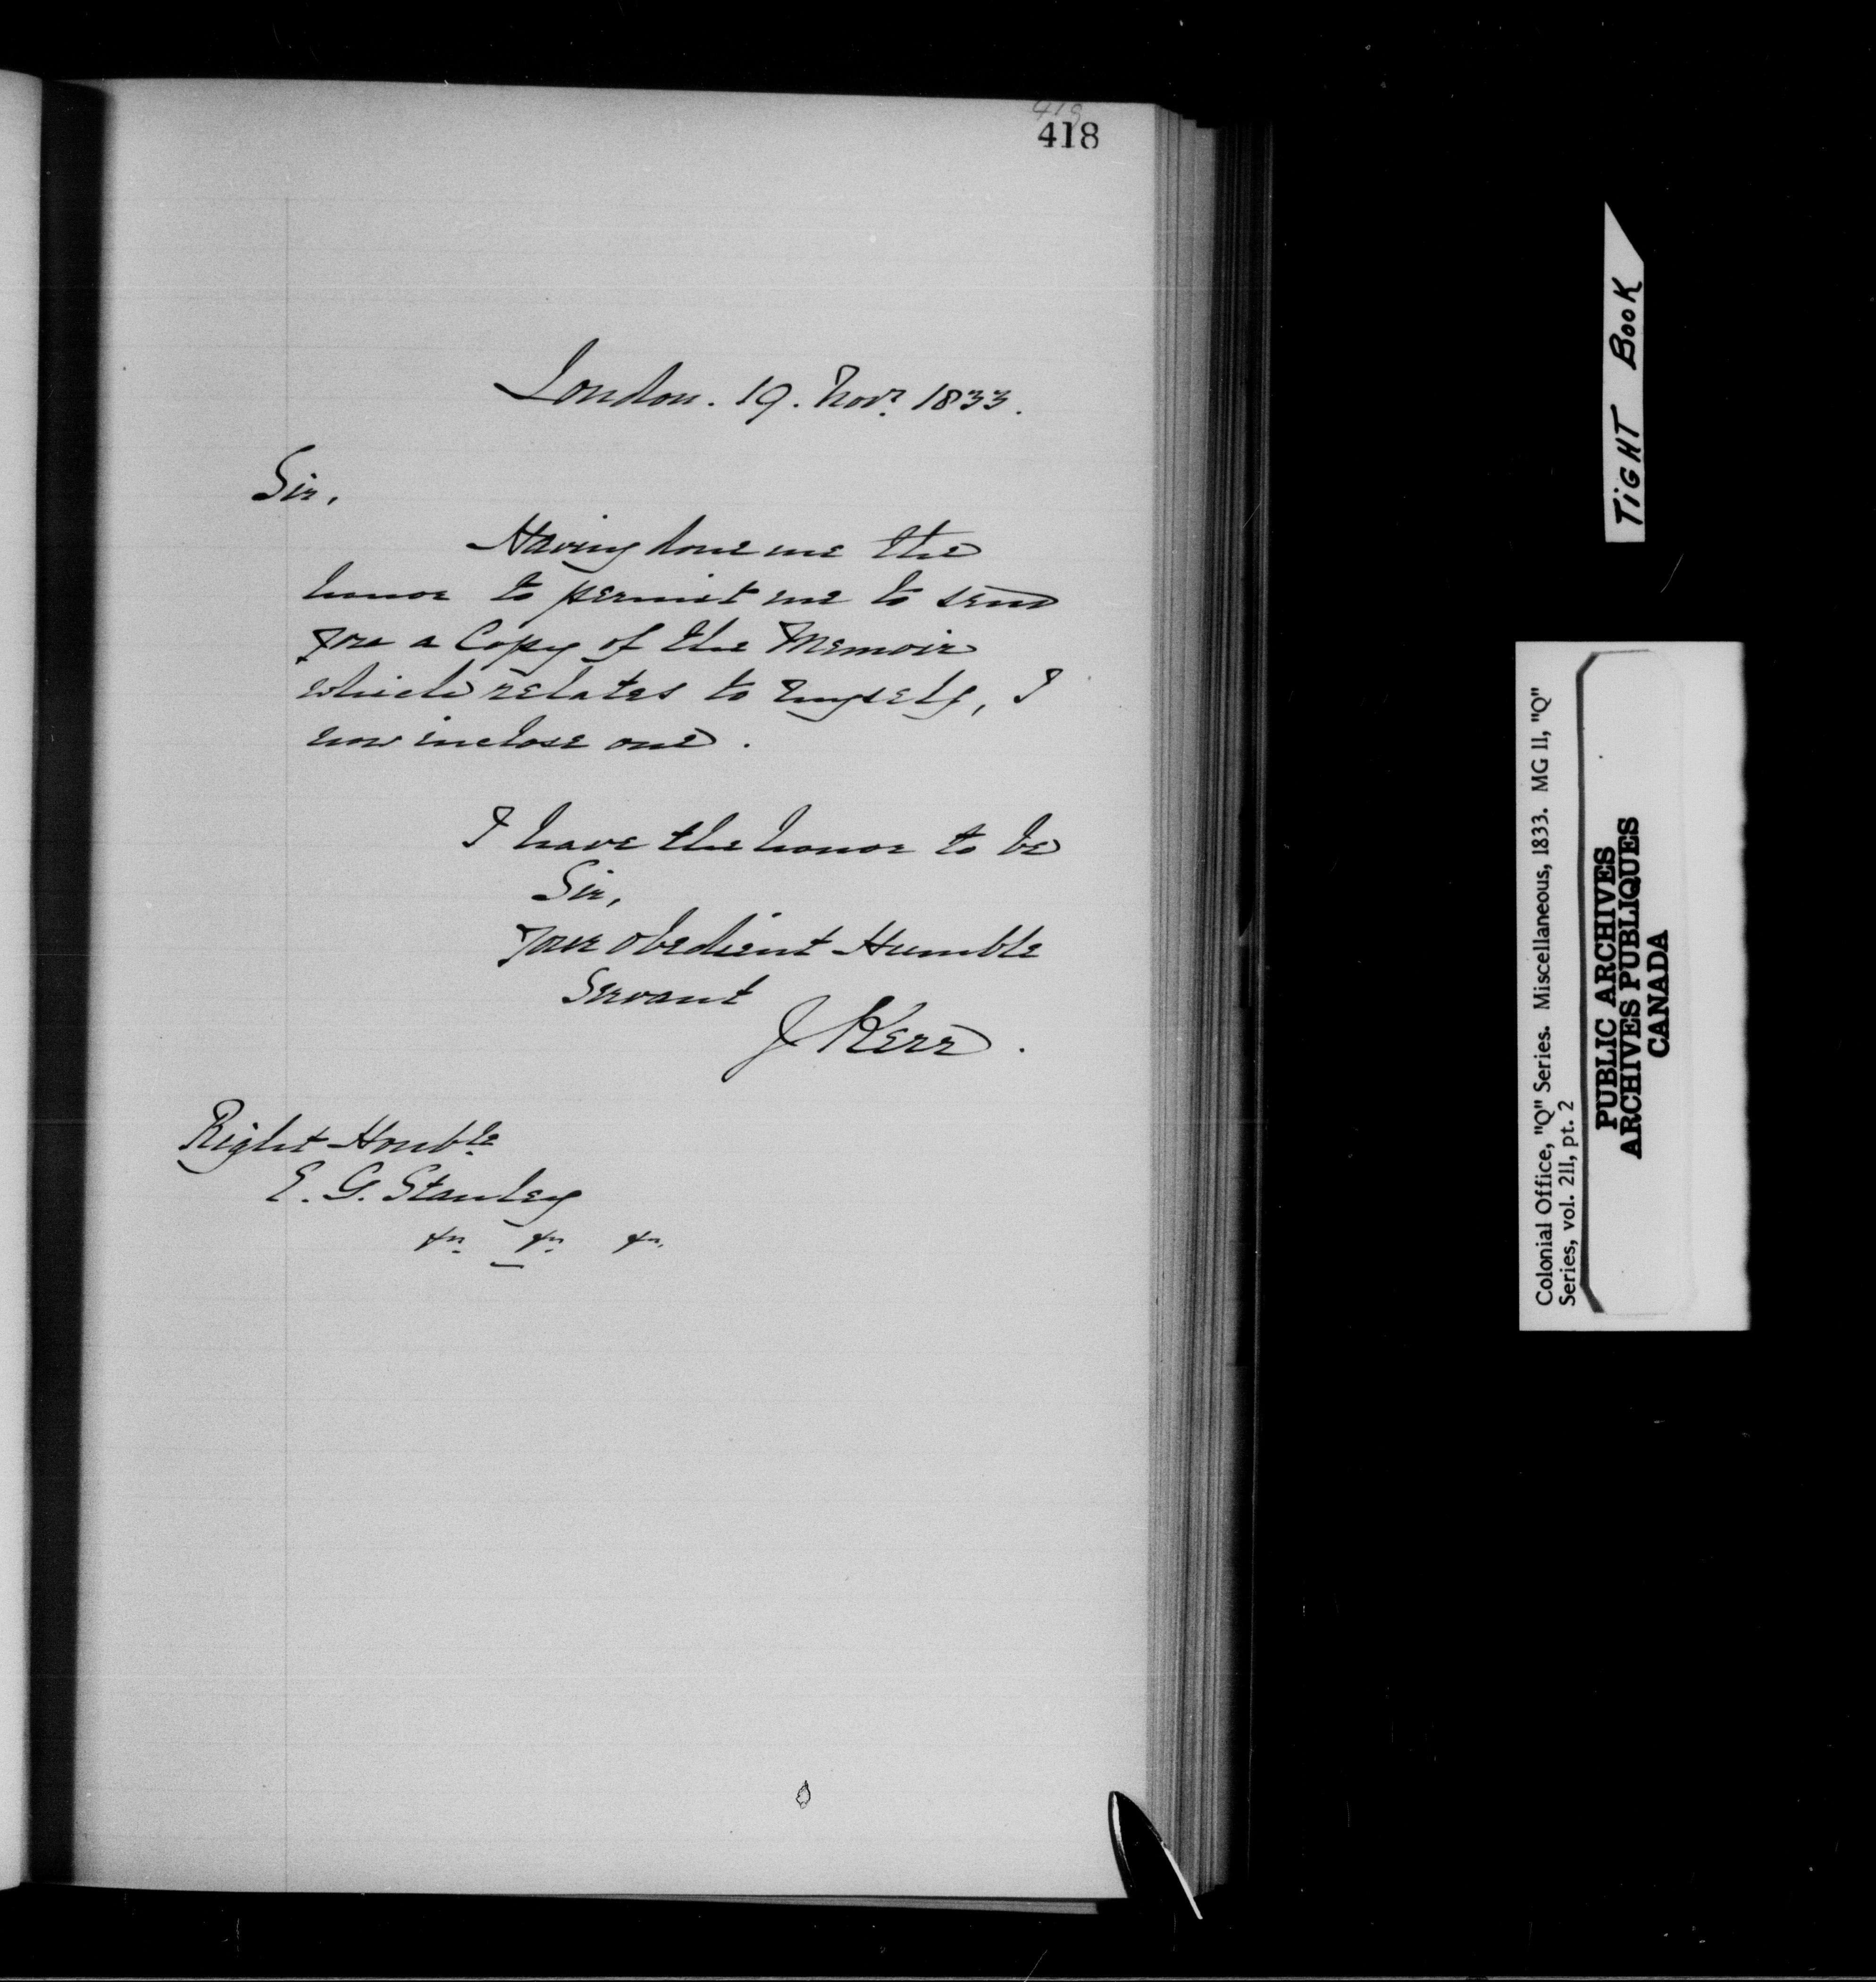 418
418
London. 19. Novr. 1833.
Sir,
Having done me the
honor to permit me to send
you a Copy of the Memoir
which relates to myself, I
now inclose one.
I have the honor to be
Sir,
Your obedient Humble
Servant
J Kerr.
Right Honble
E. G. Stanley
&c. &c. &c.
TIGHT BOOK
Colonial Office, "Q" Series. Miscellaneous, 1833. MG 11, "Q"
Series, vol. 211, pt. 2
PUBLIC ARCHIVES
ARCHIVES PUBLIQUES
CANADA